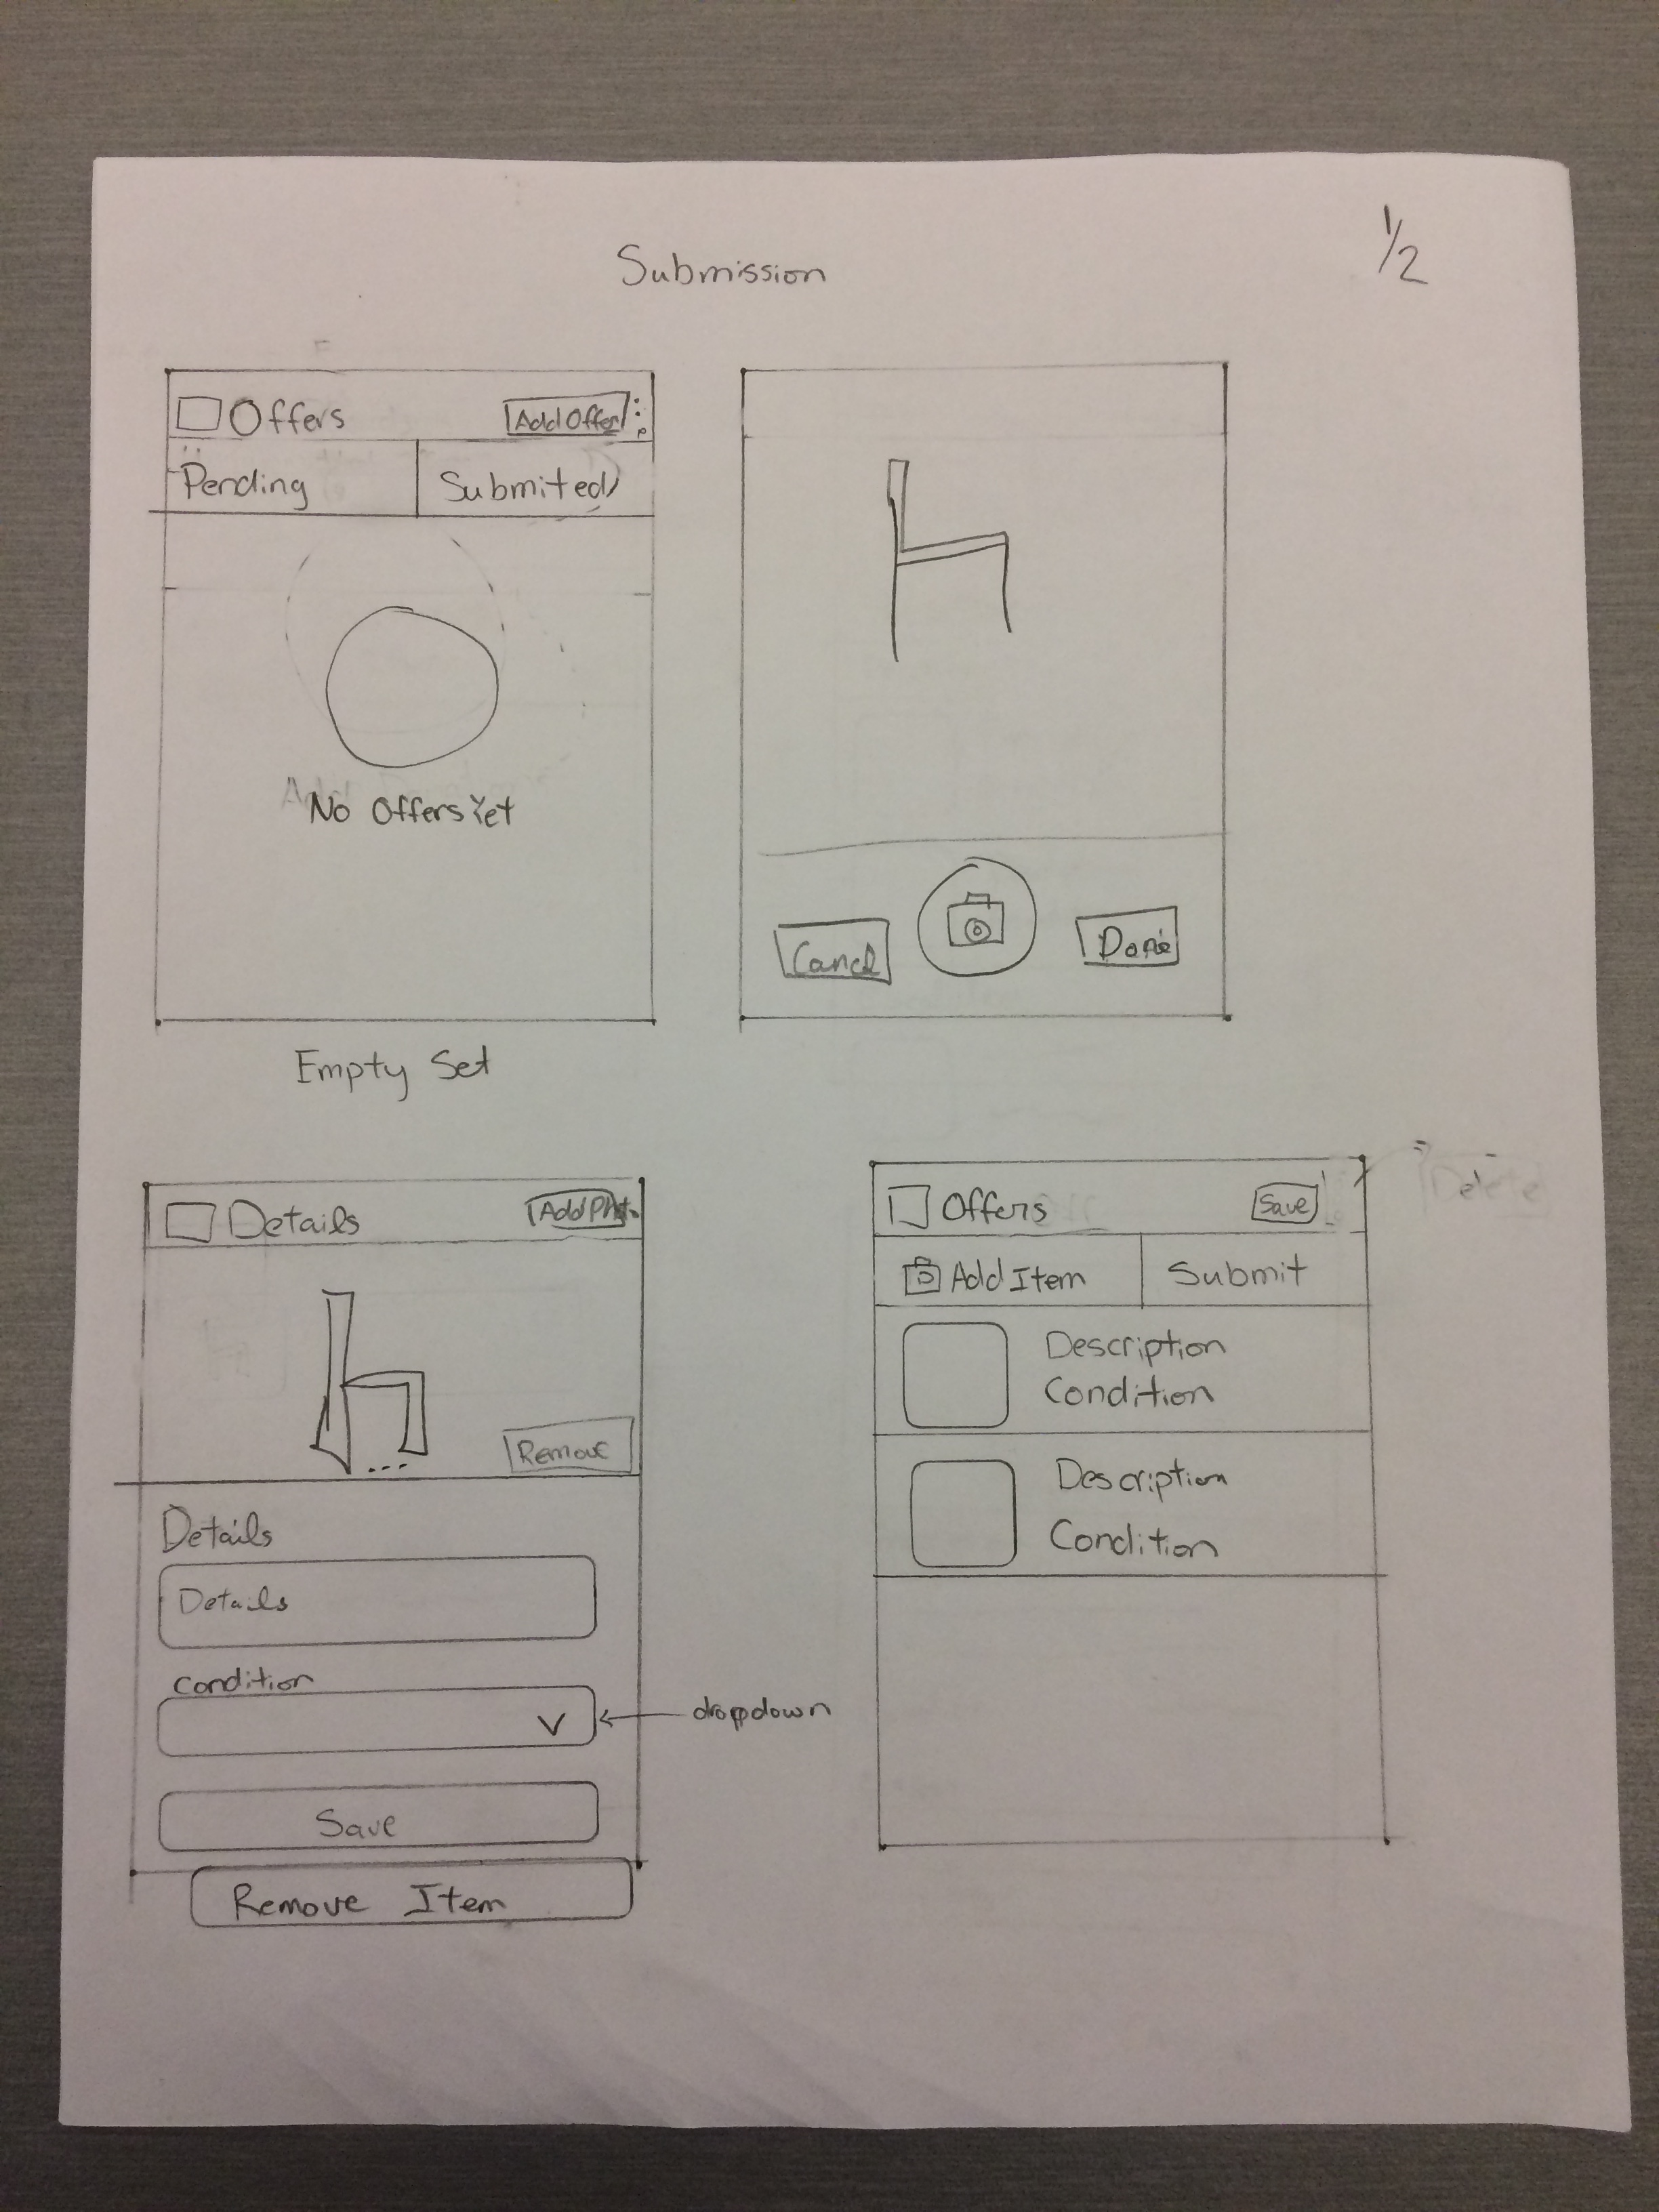 Submission
1/2
Offers
Add Offer
Pending
Submited
No Offers Yet
Empty Set
Cancel
Done
Details
Add Photo
Remove
Details
Details
Condition
dropdown
Save
Remove Item
Offers
Save
Delete
Add Item
Submit
Description
Condition
Description
Condition